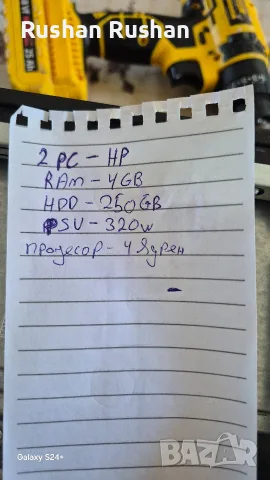 Rushan Rushan
25 Ah
2 PC - HP
RAM - 4GB
HDD - 250GB
PSU - 320w
процесор - 4 ядрен
-
Galaxy S24+
BAZAR